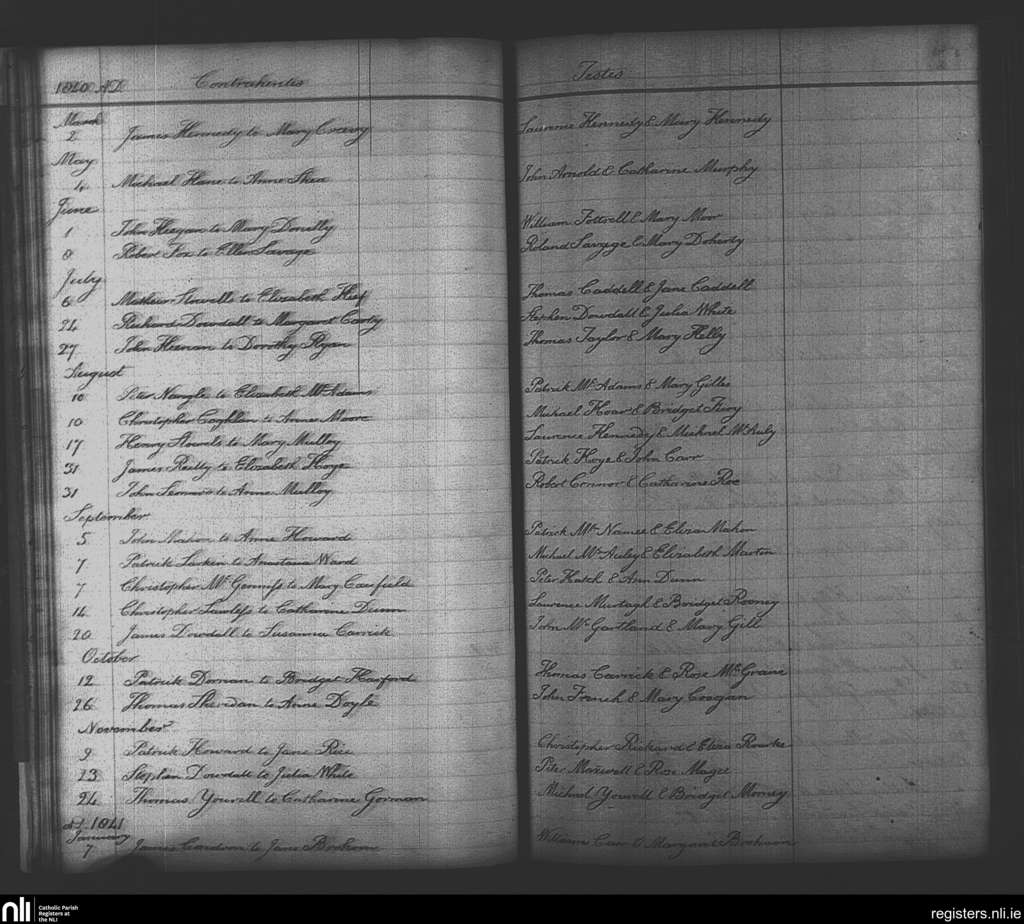 1840 AD Contrahentes Testes
March
2 James Kennedy to Mary Creevy Laurence Kennedy & Mary Kennedy
May
4 Michael Kane to Anne Shea John Arnold & Catharine Murphy
June
1 John Keegan to Mary Donelly William Fottrell & Mary Moor
8 Robert Fox to Ellen Savage Roland Savage & Mary Doherty
July
6 Mathew Stowells to Elizabeth Thomas Caddell & Jane Caddell
24 Richard Dowdall to Margaret Carty Stephen Dowdall & Julia White
27 John Keenan to Dorothy Ryan Thomas Taylor & Mary Kelly
August
10 Peter Nangle to Elizabeth McAdams Patrick McAdams & Mary Gilles
10 Christopher Coghlan to Anne Moore Michael Hoar & Bridget Fury
17 Henry Stowels to Mary Mulloy Laurence Kennedy & Michael McAuly
31 James Reilly to Elizabeth Hoye Patrick Hoye & John Carr
31 John to Anne Mulloy Robert Connor & Catharine Roe
September
5 John Mahon to Anne Howard Patrick McNamee & Eliza Mahon
7 Patrick Larkin to Anastasia Ward Michael McAuley & Elizabeth Martin
7 Christopher McGenniss to Mary Caufield Peter Hatch & Ann Dunn
14 Christopher Lawless to Catharine Dunn Laurence Murtagh & Bridget Rooney
20 James Dowdall to Susanna Carrick John McGartland & Mary Gill
October
12 Patrick Dornan to Bridget Harford Thomas Carrick & Rose McGrane
26 Thomas Sheridan to Anne Doyle John French & Mary Coogan
November
9 Patrick Howard to Jane Rice Christopher Rickard & Eliza Rourke
23 Stephen Dowdall to Julia White Peter Maxwell & Rose Magee
24 Thomas Youvell to Catharine Gorman Michael Youvell & Bridget Morney
1841
January
7 James to Jane William Carr & Margaret
nli Catholic Parish
Registers at
the NLI
registers.nli.ie